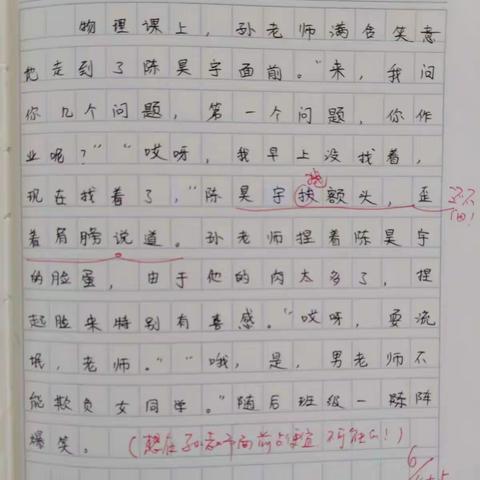 物理课上，孙老师满含笑意
地走到了陈昊宇面前。"来，我问
你几个问题，第一个问题，你作
业呢？""哎呀，我早上没找着，
现在找着了，"陈昊宇扶额头，歪
着肩膀说道。孙老师捏着陈昊宇
的脸蛋，由于他的肉太多了，捏
起脸来特别有喜感。"哎呀，耍流
氓，老师。""哦，是，男老师不
能欺负女同学。"随后班级一陈阵
爆笑。（想在孙老师面前占便宜 不可能的！）